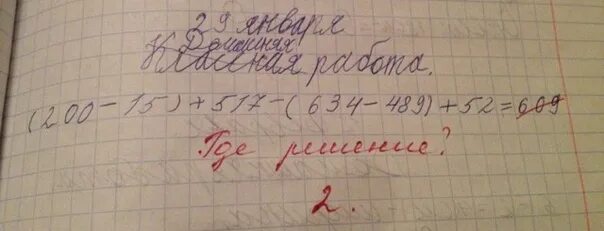 29 января
Домашняя
Классная работа.
(200-15)+517-(634-489)+52=609
Где решение?
2.